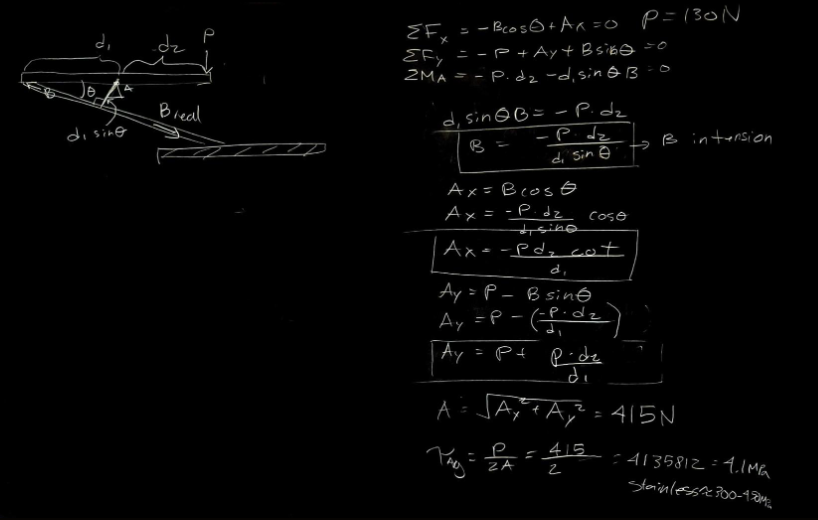 d₁ d₂ P
B θ A
B real
d₁ sinθ
ΣFx = -Bcosθ + Ax = 0 P = 130N
ΣFy = -P + Ay + Bsinθ = 0
ΣMA = -P·d₂ - d₁ sinθ B = 0
d₁ sinθ B = -P·d₂
B = -P·d₂ / d₁ sinθ → B in tension
Ax = B cosθ
Ax = -P·d₂ / d₁ sinθ cosθ
Ax = -Pd₂ cot / d₁
Ay = P - B sinθ
Ay = P - (-P·d₂ / d₁)
Ay = P + P·d₂ / d₁
A = √Ay² + Ay² = 415N
τAg = P / 2A = 415 / 2 = 4135812 = 4.1MPa